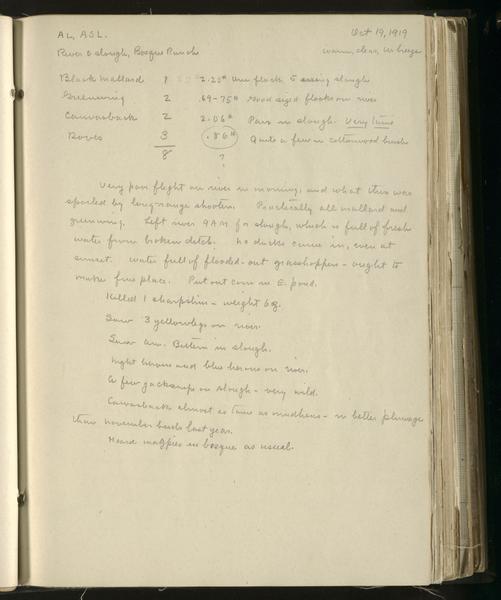 AL, ASL. Oct 19, 1919
River & slough, Bosque Ranch warm, clear, W breeze
Black Mallard 1 2.25# One flock crossing slough
Greenwing 2 .69-.75# Good sized flocks on river
Canvasback 2 2.06# Pair in slough. Very tame
Doves 3 .26# Quite a few in cottonwood brush
8 ?
Very poor flight on river in morning, and what there was
spoiled by long-range shooters. Practically all mallard and
greenwing. Left river 9AM for slough, which is full of fresh
water from broken ditch. No ducks came in, even at
sunset. Water full of flooded-out grasshoppers - ought to
make fine place. Put out corn in E. pond.
Killed 1 sharpshin - weight 6 oz.
Saw 3 yellowlegs on river.
Saw Am. Bittern in slough.
Night herons and blue herons on river.
A few jacksnipe on slough - very wild.
Canvasback almost as tame as mudhens - in better plumage
than November birds last year.
Heard magpies in bosque as usual.